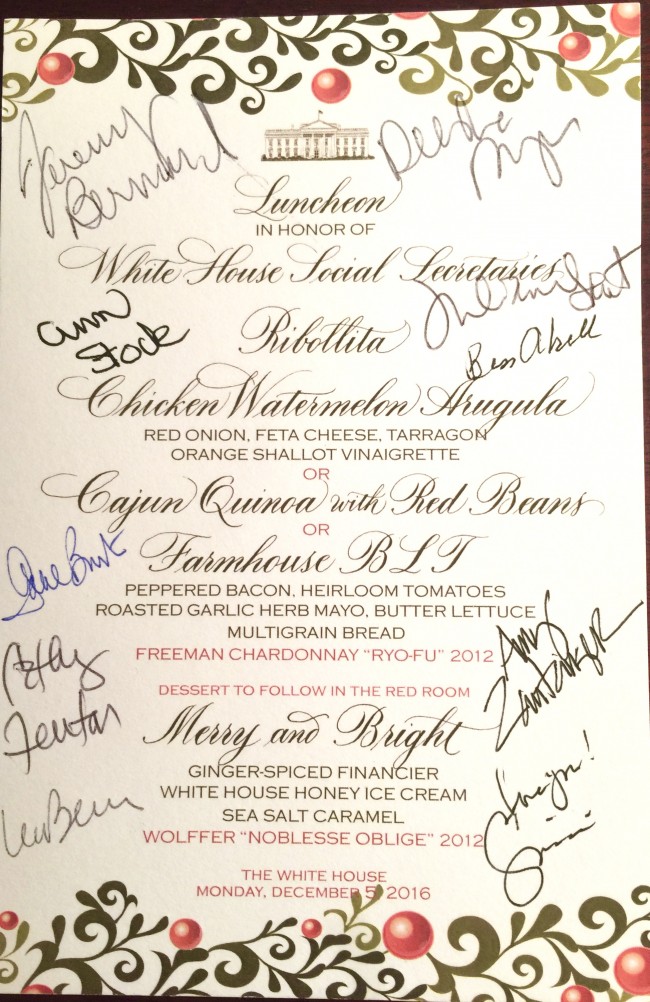 Jeremy
Bernard
Dee Dee
Myers
Luncheon
IN HONOR OF
White House Social Secretaries
Ann
Stock
Ribollita
Bess Abell
Chicken Watermelon Arugula
RED ONION, FETA CHEESE, TARRAGON
ORANGE SHALLOT VINAIGRETTE
OR
Cajun Quinoa with Red Beans
OR
Farmhouse BLT
PEPPERED BACON, HEIRLOOM TOMATOES
ROASTED GARLIC HERB MAYO, BUTTER LETTUCE
MULTIGRAIN BREAD
FREEMAN CHARDONNAY “RYO-FU” 2012
Cathy
Fenton
Amy
Zantzinger
DESSERT TO FOLLOW IN THE RED ROOM
Merry and Bright
GINGER-SPICED FINANCIER
WHITE HOUSE HONEY ICE CREAM
SEA SALT CARAMEL
WOLFFER “NOBLESSE OBLIGE” 2012
Lea Berman
THE WHITE HOUSE
MONDAY, DECEMBER 5, 2016